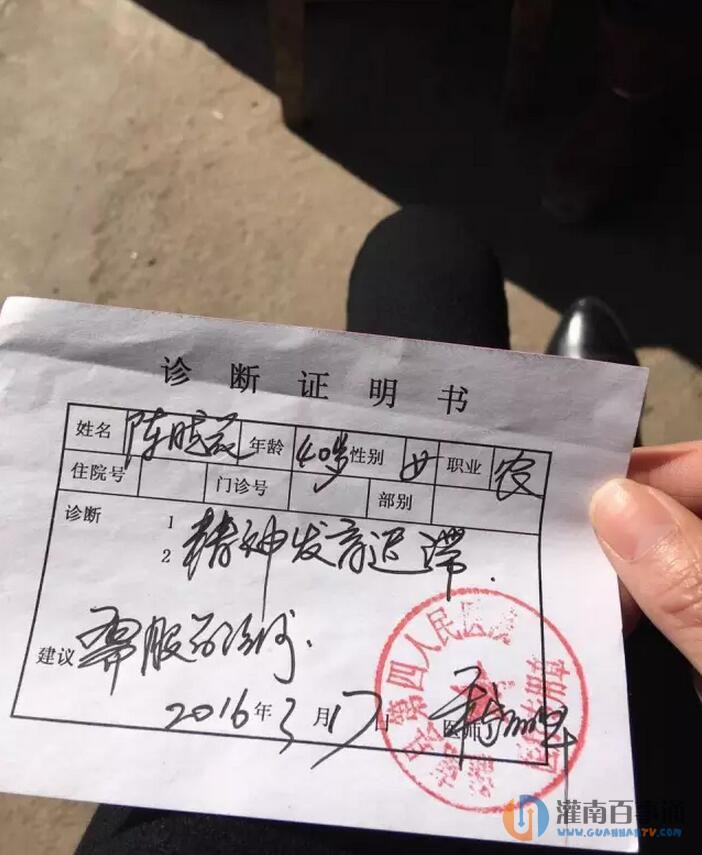 诊断证明书
姓名 陈 年龄 40岁 性别 女 职业 农
住院号 门诊号 部别
诊断 1
2 精神发育迟滞.
建议 需服药治疗.
2016年3月17日 医师
第四人民医院
灌南百事通
WWW.GUANNANTV.COM